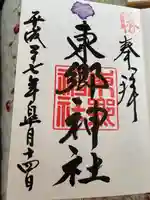 勝
奉拝
東郷神社
平成二十七年皐月十四日